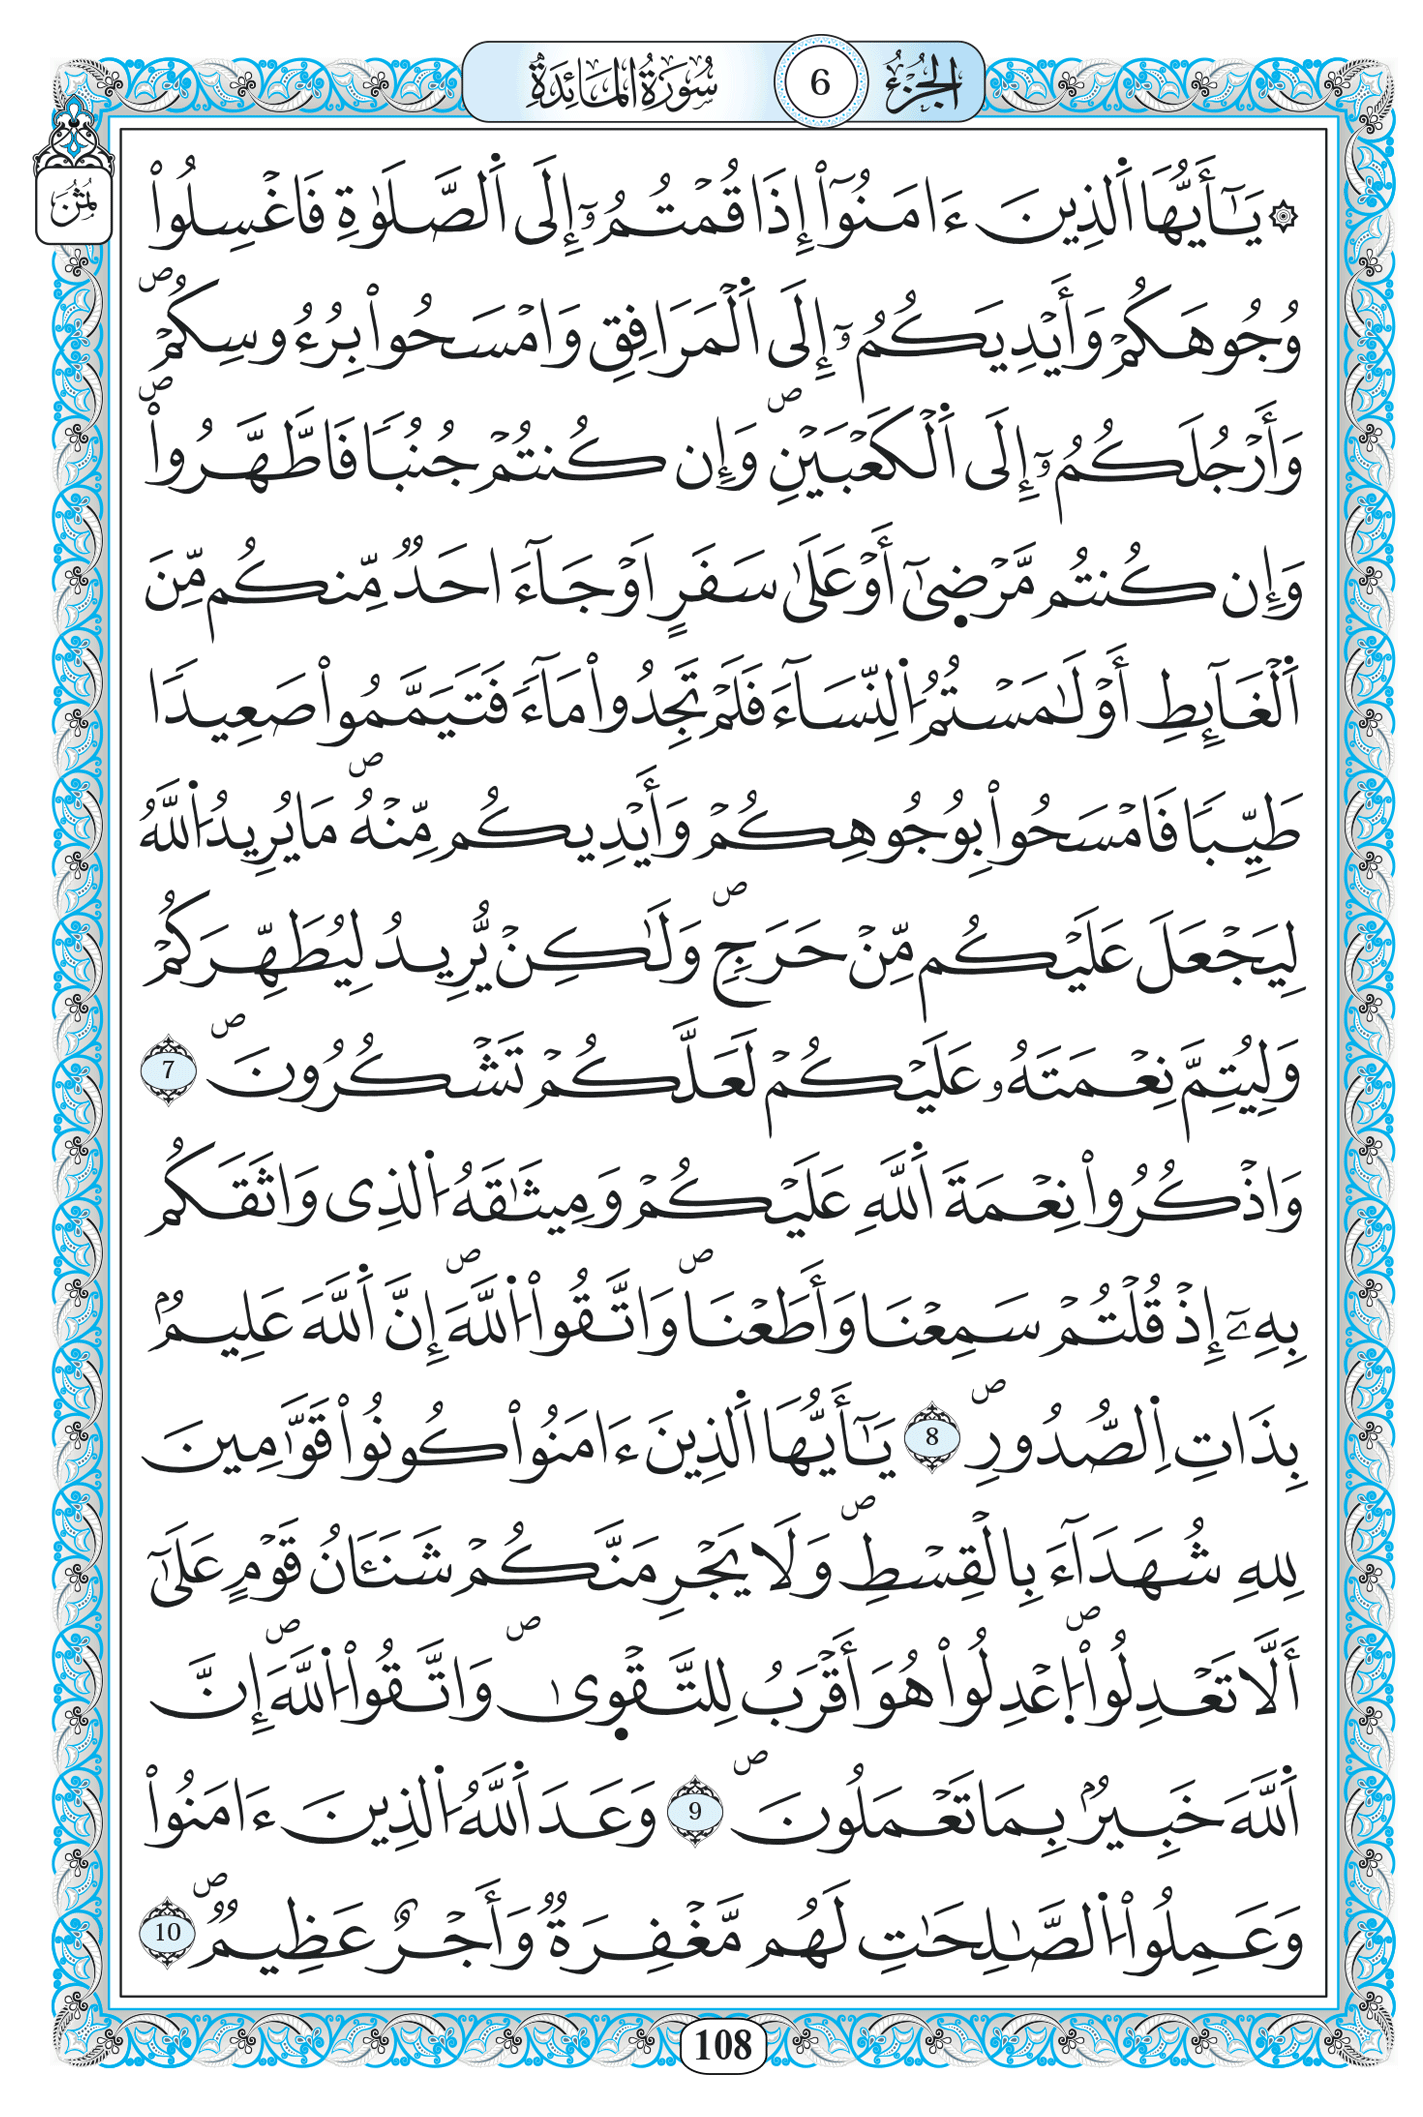 الجزء 6 سورة المائدة
ثمن
۞ يَٰٓأَيُّهَا اَ۬لذِينَ ءَامَنُوٓاْ إِذَا قُمْتُمُۥٓ إِلَى اَ۬لصَّلَوٰةِ فَاغْسِلُواْ
وُجُوهَكُمْ وَأَيْدِيَكُمُۥٓ إِلَى اَ۬لْمَرَافِقِ وَامْسَحُواْ بِرُءُوسِكُمْۖ
وَأَرْجُلَكُمُۥٓ إِلَى اَ۬لْكَعْبَيْنِۖ وَإِن كُنتُمْ جُنُباٗ فَاطَّهَّرُواْۖ
وَإِن كُنتُم مَّرْضِيٰٓ أَوْ عَلَىٰ سَفَرٍ اَوْ جَآءَ احَدٞ مِّنكُم مِّنَ
اَ۬لْغَآئِطِ أَوْ لَٰمَسْتُمُ اُ۬لنِّسَآءَ فَلَمْ تَجِدُواْ مَآءٗ فَتَيَمَّمُواْ صَعِيداٗ
طَيِّباٗ فَامْسَحُواْ بِوُجُوهِكُمْ وَأَيْدِيكُم مِّنْهُۖ مَا يُرِيدُ اُ۬للَّهُ
لِيَجْعَلَ عَلَيْكُم مِّنْ حَرَجٖۖ وَلَٰكِنْ يُّرِيدُ لِيُطَهِّرَكُمْ
وَلِيُتِمَّ نِعْمَتَهُۥ عَلَيْكُمْ لَعَلَّكُمْ تَشْكُرُونَۖ 7
وَاذْكُرُواْ نِعْمَةَ اَ۬للَّهِ عَلَيْكُمْ وَمِيثَٰقَهُ اُ۬لذِي وَاثَقَكُم
بِهِۦٓ إِذْ قُلْتُمْ سَمِعْنَا وَأَطَعْنَاۖ وَاتَّقُواْ اُ۬للَّهَۖ إِنَّ اَ۬للَّهَ عَلِيمُۢ
بِذَاتِ اِ۬لصُّدُورِۖ 8 يَٰٓأَيُّهَا اَ۬لذِينَ ءَامَنُواْ كُونُواْ قَوَّٰمِينَ
لِلهِ شُهَدَآءَ بِالْقِسْطِۖ وَلَا يَجْرِمَنَّكُمْ شَنَـَٔانُ قَوْمٍ عَلَىٰٓ
أَلَّا تَعْدِلُواْۖ اُ۪عْدِلُواْ هُوَ أَقْرَبُ لِلتَّقْو۪يٰۖ وَاتَّقُواْ اُ۬للَّهَۖ إِنَّ
اَ۬للَّهَ خَبِيرُۢ بِمَا تَعْمَلُونَۖ 9 وَعَدَ اَ۬للَّهُ اُ۬لذِينَ ءَامَنُواْ
وَعَمِلُواْ اُ۬لصَّٰلِحَٰتِ لَهُم مَّغْفِرَةٞ وَأَجْرٌ عَظِيمٞۖ 10
108